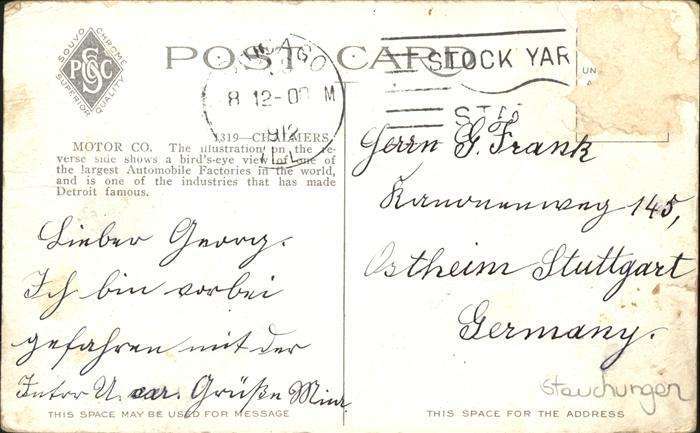 SOUVO CHROME
PSGC
SUPERIOR QUALITY
POST CARD
CHICAGO
8 12-00 M
1912
ILL.
STOCK YAR
STA
UN
1319—CHALMERS
MOTOR CO. The illustration on the re-
verse side shows a bird's-eye view of one of
the largest Automobile Factories in the world,
and is one of the industries that has made
Detroit famous.
Lieber Georg.
Ich bin vorbei
gefahren mit der
U. car. Grüße
THIS SPACE MAY BE USED FOR MESSAGE
Herrn G. Frank
Kanonenweg 145,
Ostheim Stuttgart
Germany.
Stauchungen
THIS SPACE FOR THE ADDRESS